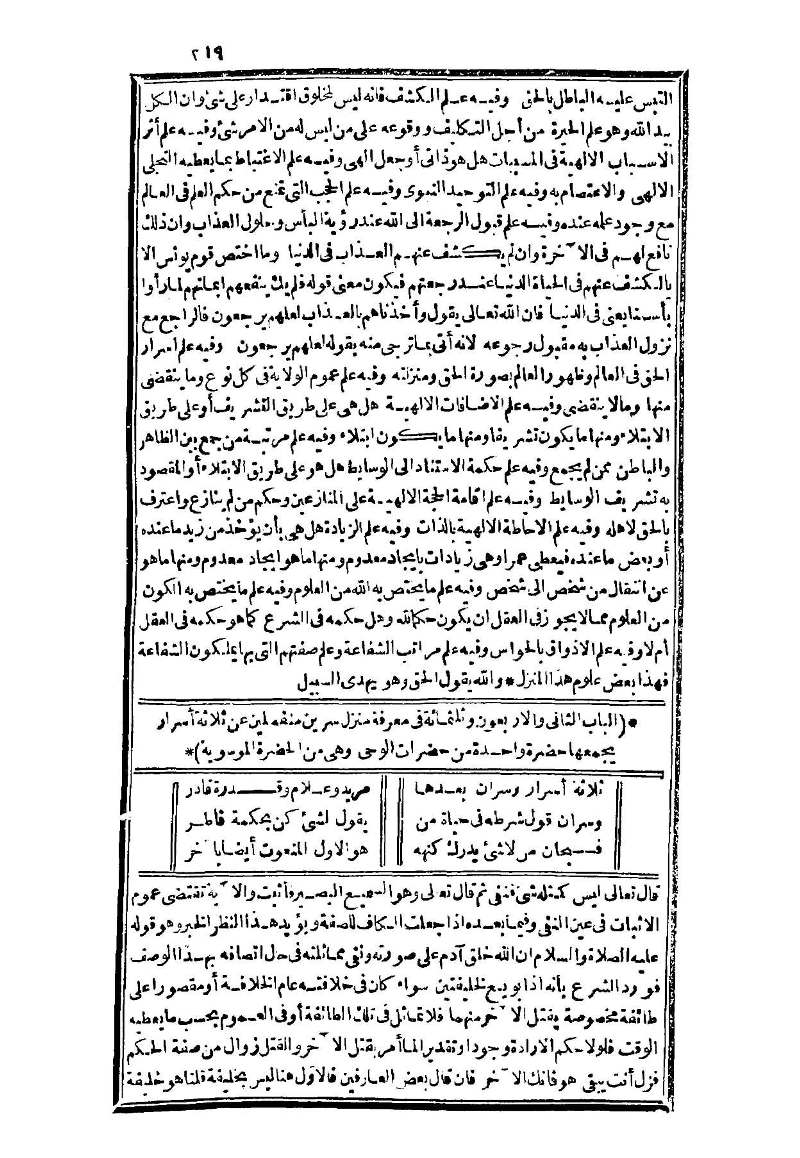 ٢١٩
التبس عليه الباطل بالحق وفيه علم الكشف فانه ليس لمخلوق اقتدار على شئ وان الكل
بيد الله وهو علم الحيرة من أجل التكليف ووقوعه على من ليس له من الامر شئ وفيه علم أثر
الاسباب الالهية فى المسببات هل هو ذاتى أو جعل الهى وفيه علم الاغتباط بما يعطيه التجلى
الالهى والاعتصام به وفيه علم التوحيد النبوى وفيه علم الحجب التى تمنع من حكم العلم فى العالم
مع وجود علمه عنده وفيه علم قبول الرجعة الى الله عند رؤية البأس وحلول العذاب وان ذلك
نافع لهم فى الآخرة وان لم يكشف عنهم العذاب فى الدنيا وما اختص قوم يونس الا
بالكشف عنهم فى الحياة الدنيا عند رجعتهم فيكون معنى قوله فلم يك ينفعهم ايمانهم لما رأوا
بأسنا يعنى فى الدنيا فان الله تعالى يقول وأخذناهم بالعذاب لعلهم يرجعون فالراجع مع
نزول العذاب به مقبول رجوعه لانه أتى بما ترجى منه بقوله لعلهم يرجعون وفيه علم اسرار
الحق فى العالم وظهور العالم بصورة الحق ومنزلته وفيه علم عموم الولاية فى كل نوع وما ينقضى
منها وما لا ينقضى وفيه علم الاضافات الالهية هل هى على طريق التشريف أو على طريق
الابتلاء ومنها ما يكون تشريفا ومنها ما يكون ابتلاء وفيه علم مرتبة من جمع بين الظاهر
والباطن ممن لم يجمع وفيه علم حكمة الاستناد الى الوسايط هل هو على طريق الابتلاء أو المقصود
به تشريف الوسايط وفيه علم اقامة الحجة الالهية على المنازعين وحكم من لم ينازع واعترف
بالحق لاهله وفيه علم الاحاطة الالهية بالذات وفيه علم الزيادة هل هى بأن يؤخذ من زيد ما عنده
أو بعض ما عنده فيعطى عمرا وهى زيادات بايجاد معدوم ومنها ما هو ايجاد معدوم ومنها ما هو
عن انتقال من شخص الى شخص وفيه علم ما يختص به الله من العلوم وفيه علم ما يختص به الكون
من العلوم مما لا يجوز فى العقل ان يكون حكما لله وهل حكمه فى الشرع كما هو حكمه فى العقل
أم لا وفيه علم الاذواق بالحواس وفيه علم مراتب الشفاعة وعلم صفتهم التى بها يملكون الشفاعة
فهذا بعض علوم هذا المنزل * والله يقول الحق وهو يهدى السبيل
*(الباب الثانى والاربعون وثلثمائة فى معرفة منزل سرين منفصلين عن ثلاثة أسرار
يجمعها حضرة واحدة من حضرات الوحى وهى من الحضرة الموسوية)*
ثلاثة أسرار وسران بعدها مريد وعلام وقدرة قادر
وسران قول شرطه فى حياة من يقول لشئ كن بحكمة فاطر
فسبحان من لا شئ يدرك كنهه هو الاول المنعوت أيضا بآخر
قال تعالى ليس كمثله شئ فنفى ثم قال تعالى وهو السميع البصير فأثبت والآية تقتضى عموم
الاثبات فى عين النفى وفيما بعده اذا جعلت الكاف للصفة ويؤيد هذا النظر الخبر وهو قوله
عليه الصلاة والسلام ان الله خلق آدم على صورته ونفى مماثلته فى حال اتصافه بهذا الوصف
فورد الشرع بأنه اذا بويع لخليفتين سواء كان فى خلافته عام الخلافة أو مقصورا على
طائفة مخصوصة يقتل الآخر منهما فلا تماثل فى تلك الطائفة أو فى العموم بحسب ما يعطيه
الوقت فلولا حكم الارادة وجودا وتقديرا لما أمر بقتل الآخر والقتل زوال من صفة الحكم
فزل أنت يبقى هو فانك الآخر فان قال بعض العارفين فالاول هنا ليس بخليفة قلنا هو خليفة